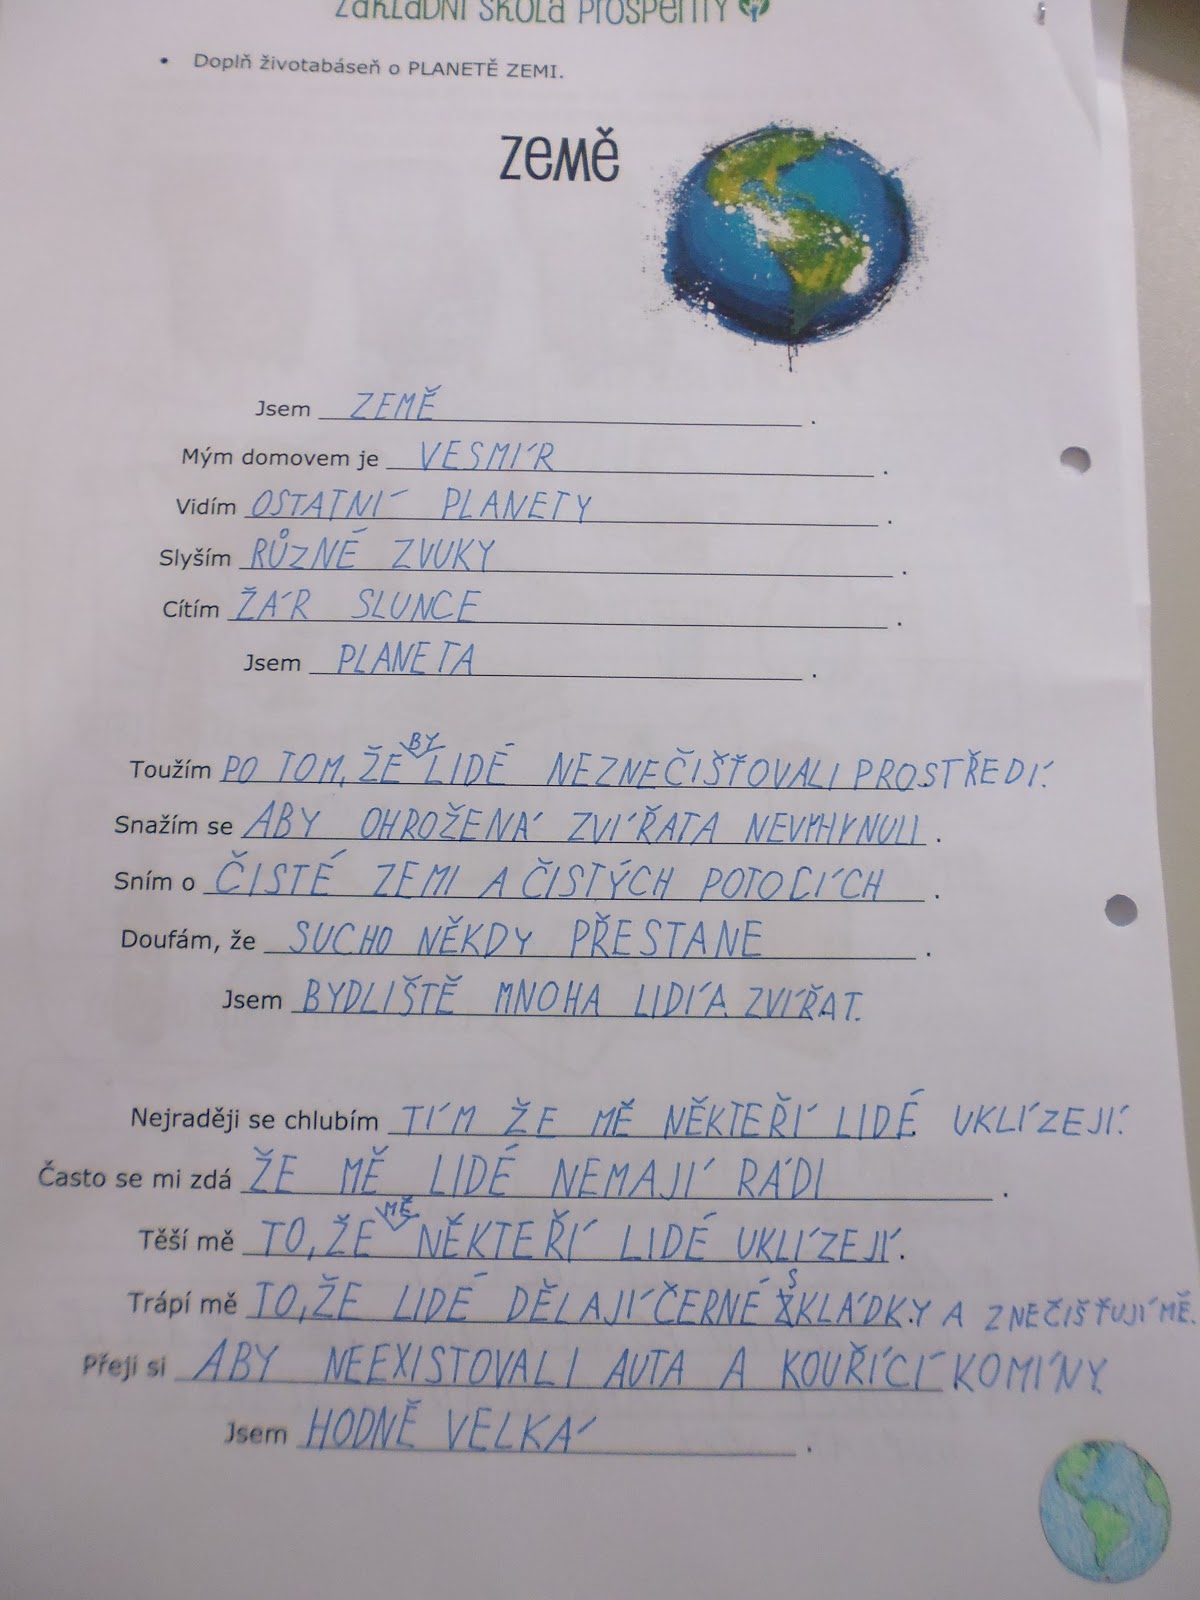 Základní škola Prosperity
• Doplň životabáseň o PLANETĚ ZEMI.
Země
Jsem ZEMĚ .
Mým domovem je VESMÍR .
Vidím OSTATNÍ PLANETY .
Slyším RŮZNÉ ZVUKY .
Cítím ŽÁR SLUNCE .
Jsem PLANETA .
Toužím PO TOM, ŽE BY LIDÉ NEZNEČIŠŤOVALI PROSTŘEDÍ.
Snažím se ABY OHROŽENÁ ZVÍŘATA NEVYHYNULI .
Sním o ČISTÉ ZEMI A ČISTÝCH POTOCÍCH .
Doufám, že SUCHO NĚKDY PŘESTANE .
Jsem BYDLIŠTĚ MNOHA LIDÍ A ZVÍŘAT.
Nejraději se chlubím TÍM ŽE MĚ NĚKTEŘÍ LIDÉ UKLÍZEJÍ.
Často se mi zdá ŽE MĚ LIDÉ NEMAJÍ RÁDI .
Těší mě TO, ŽE MĚ NĚKTEŘÍ LIDÉ UKLÍZEJÍ.
Trápí mě TO, ŽE LIDÉ DĚLAJÍ ČERNÉ SKLÁDKY A ZNEČIŠŤUJÍ MĚ.
Přeji si ABY NEEXISTOVALI AUTA A KOUŘÍCÍ KOMÍNY.
Jsem HODNĚ VELKÁ .